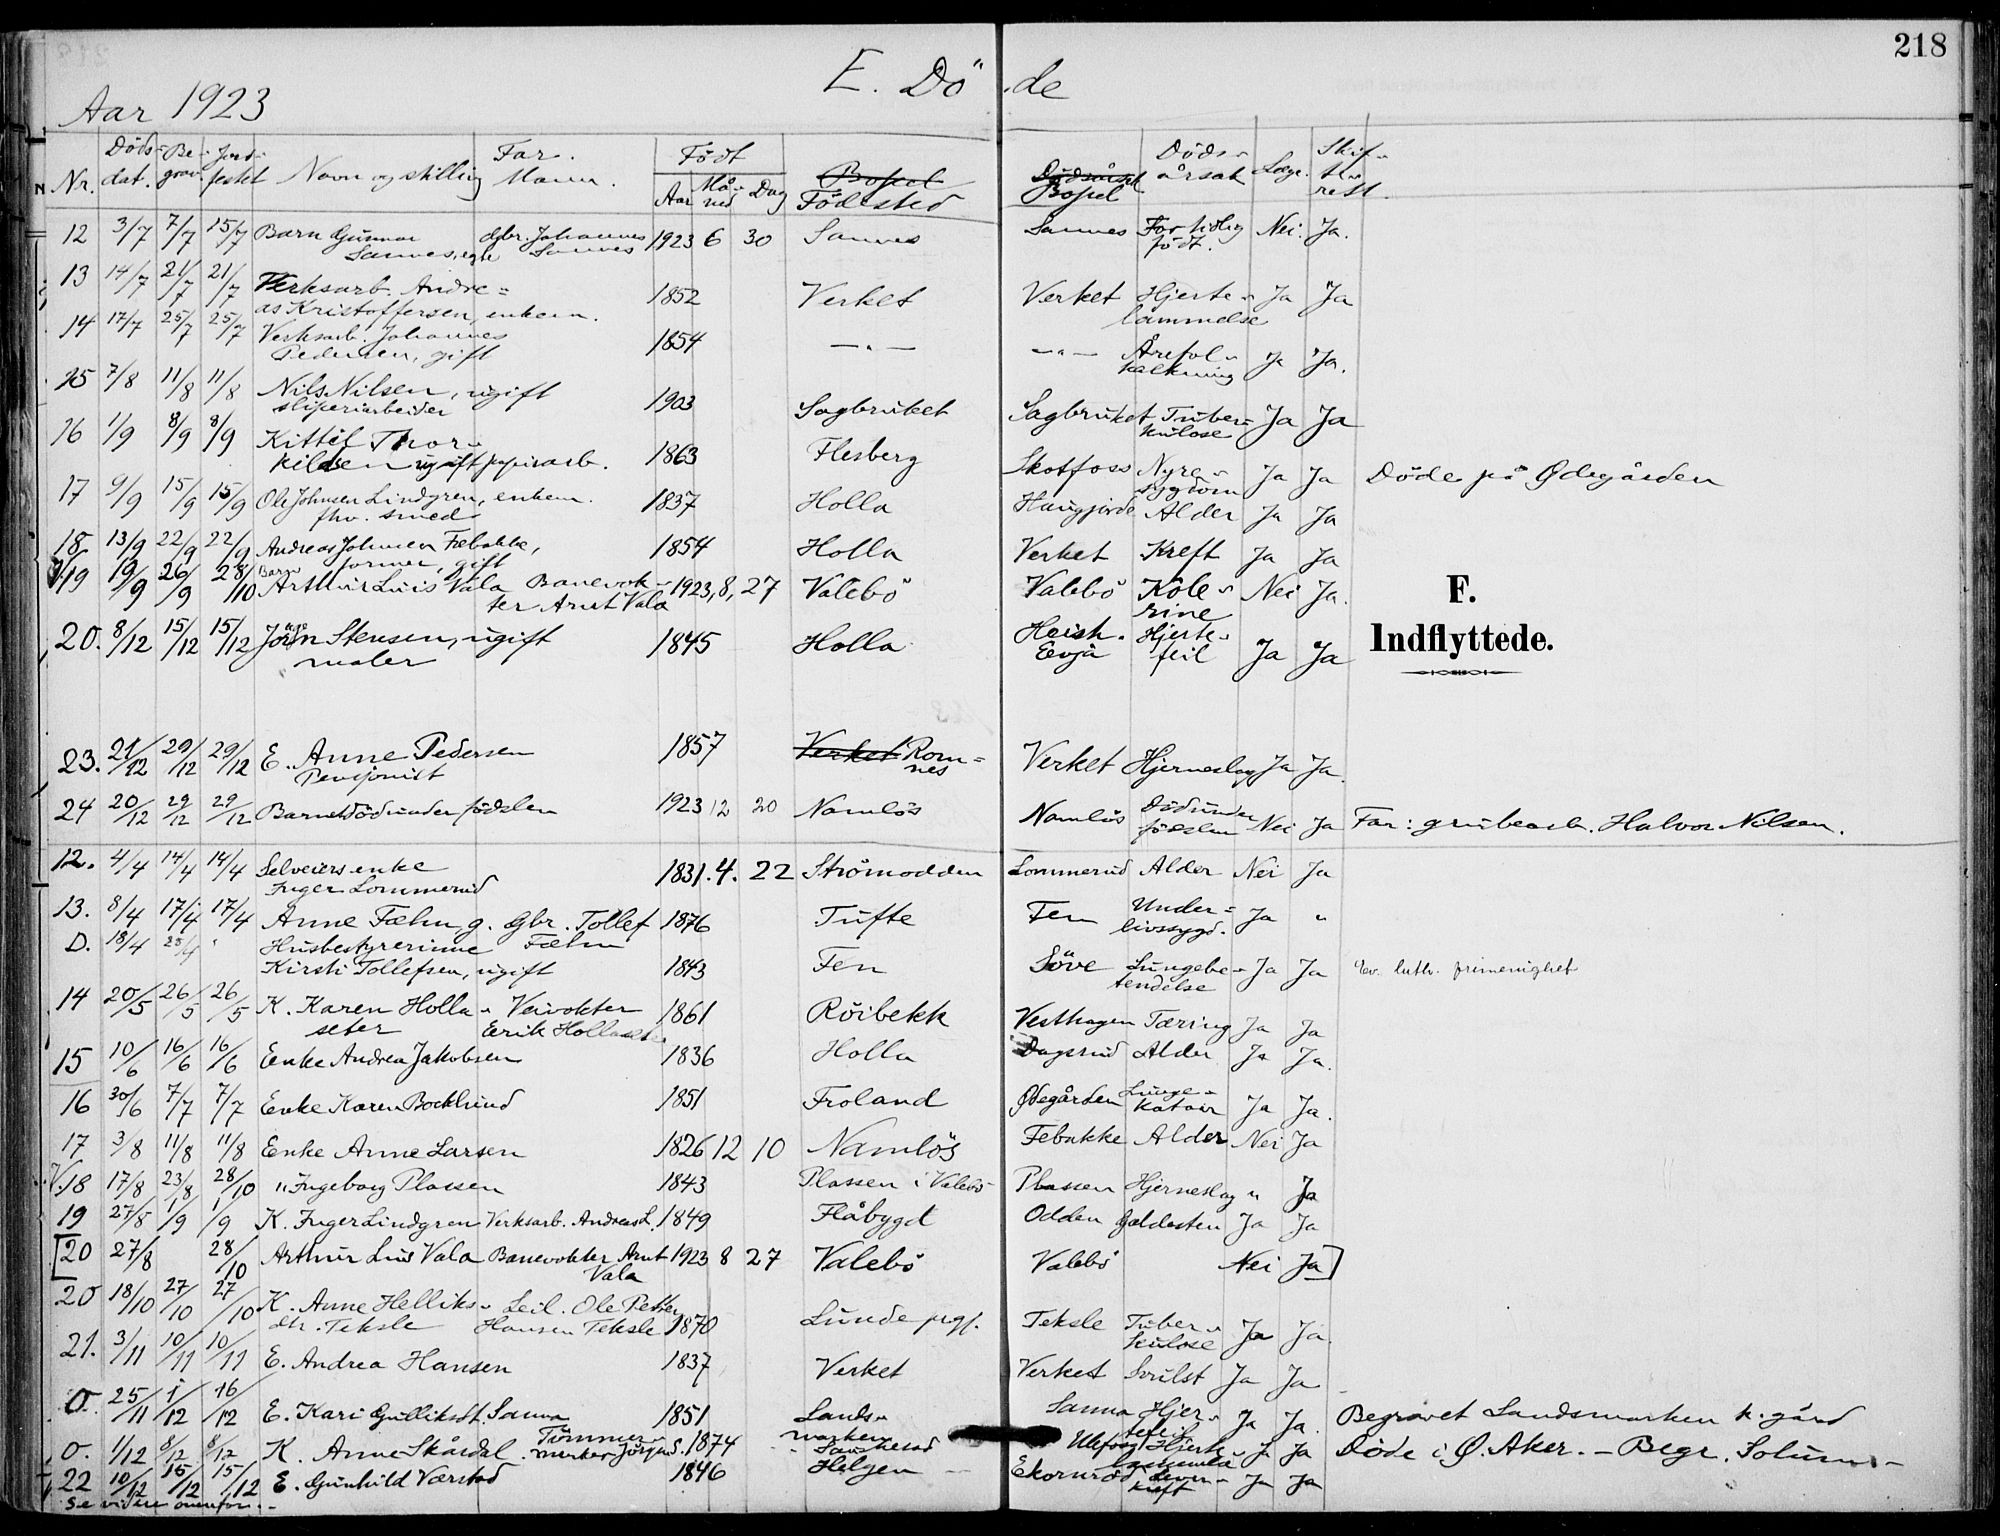 218
E. Dö de
Aar 1923
Nr. Döds dat. Be grav. Jord festet Navn og stilling Far. Mann. Födt Aar Må ned Dag Bopel Födested Dödsårsak Bopel Döds årsak Læge. Skif te rett.
12 3/7 7/7 15/7 Barn Gunnar gbr. Johannes 1923 6 30 Sannes Sannes For tidlig Nei. Ja.
Sannes, egte Sannes födt.
13 14/7 21/7 21/7 Verksarb. Andre= 1852 Verket Verket Hjerte Ja Ja
as Kristoffersen, enkem. lammelse
14 17/7 25/7 25/7 Verksarb. Johannes 1854 —"— —"— Årefor Ja Ja.
Pedersen, gift kalkning
15 7/8 11/8 11/8 Nils Nilsen, ugift 1903 Sagbruket Sagbruket Tuber Ja Ja
sliperiarbeider kulose
16 1/9 8/9 8/9 Kittil Thor 1863 Flesberg Skotfoss Nyre Ja Ja Döde på Ödegården
kildsen ugift papirarb. sygdom
17 9/9 15/9 15/9 Ole Johnsen Lindgren, enkem. 1837 Holla Haugjorde Alder Ja Ja
fhv. smed
18 13/9 22/9 22/9 Andreas Johnsen Febakke, 1854 Holla Verket Kreft Ja Ja
former, gift
19 19/9 26/9 28/10 Barn Arthur Luis Vala Banevok 1923, 8, 27 Valebö Valebö Kole Nei Ja.
ter Arnt Vala rine
F.
Indflyttede.
20. 8/12 15/12 15/12 Jörn Stensen, ugift 1845 Holla Heish. Hjerte Ja Ja
maler Eevja feil
23. 21/12 29/12 29/12 E. Anne Pedersen 1857 Verket Rom= Verket Hjerneslag Ja Ja.
Pensjonist nes
24 20/12 29/12 29/12 Barnet död under födslen 1923 12 20 Namlös Namlös Död under Nei Ja Far: grubearb. Halvor Nilsen.
födslen
12. 4/4 14/4 14/4 Selveiers enke 1831. 4. 22 Strömodden Lommerud Alder Nei Ja
Inger Lommerud
13. 8/4 17/4 17/4 Anne Fæhn g. Gbr. Tollef 1876 Tufte Fen Under= Ja "
Fæhn livssygd.
D. 18/4 28/4 " Husbestyrerinne
Kirsti Tollefsen, ugift 1843 Fen Söve Lungebe Ja Ja Ev. luth. frimenighet
tendelse
14 20/5 26/5 26/5 K. Karen Holla Veivokter 1861 Röibekk Vesthagen Tæring Ja Ja
seter Erik Hollaseter
15 10/6 16/6 16/6 Enke Andrea Jakobsen 1836 Holla Dagsrud Alder Ja Ja.
16 30/6 7/7 7/7 Enke Karen Bochlund 1851 Froland Ödegården Lunge Ja Ja.
katarr
17 3/8 11/8 11/8 Enke Anne Larsen 1826 12 10 Namlös Febakke Alder Nei Ja
V. 18 17/8 23/8 28/10 " Ingeborg Plassen 1843 Plassen i Valebö Plassen Hjerneslag " Ja
19 27/8 1/9 1/9 K. Inger Lindgren Verksarb. Andreas L. 1849 Flåbygd Odden Galdesten Ja Ja
[20 27/8 28/10 Arthur Luis Vala Banevokter Arnt 1923 8 27 Valebö Valebö Nei Ja]
Vala
20 18/10 27/10 27/10 K. Anne Helliks Leil. Ole Petter 1870 Lunde prgj. Teksle Tuber Ja Ja.
dtr. Teksle Hansen Teksle kulose
21. 3/11 10/11 10/11 E. Andrea Hansen 1837 Verket Verket Svulst Ja Ja
O. 25/11 1/12 16/12 E. Kari Gulliksdt. Sanna 1851 Lands Sanna Hjer Ja Ja. Begravet Landsmarken k. gård
marken tefeil
O. 1/12 8/12 8/12 K. Anne Skårdal. Tömmer 1874 Sauherad Ulefoss Hjerte Ja Ja Döde i Ö. Aker. — Begr. Solum
merker Jörgen S.
22 10/12 15/12 15/12 E. Gunhild Værstad 1846 Helgen Ekornröd Lever Ja Ja
kreft
Se videre ovenfor.